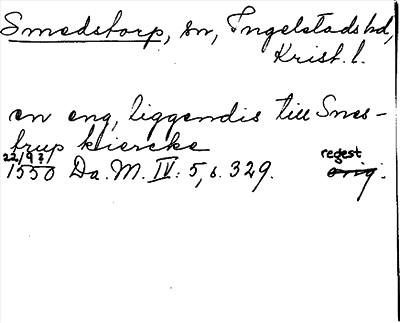 Smedstorp, sn, Ingelstads hd,
Krist. l.
en eng, liggendis till Smes-
trup kiercke
22/9 7/
1550 Da. M. IV: 5, s. 329. regest
orig.